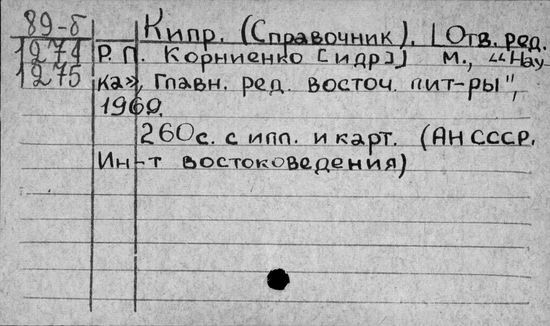 89-б
1274
1275
Кипр. (Справочник). [Отв. ред.
Р. П. Корниенко [идр]] М., "Нау
ка», Главн. ред. восточ. лит-ры",
1969.
260с. с илл. и карт. (АН СССР.
Ин-т востоковедения)